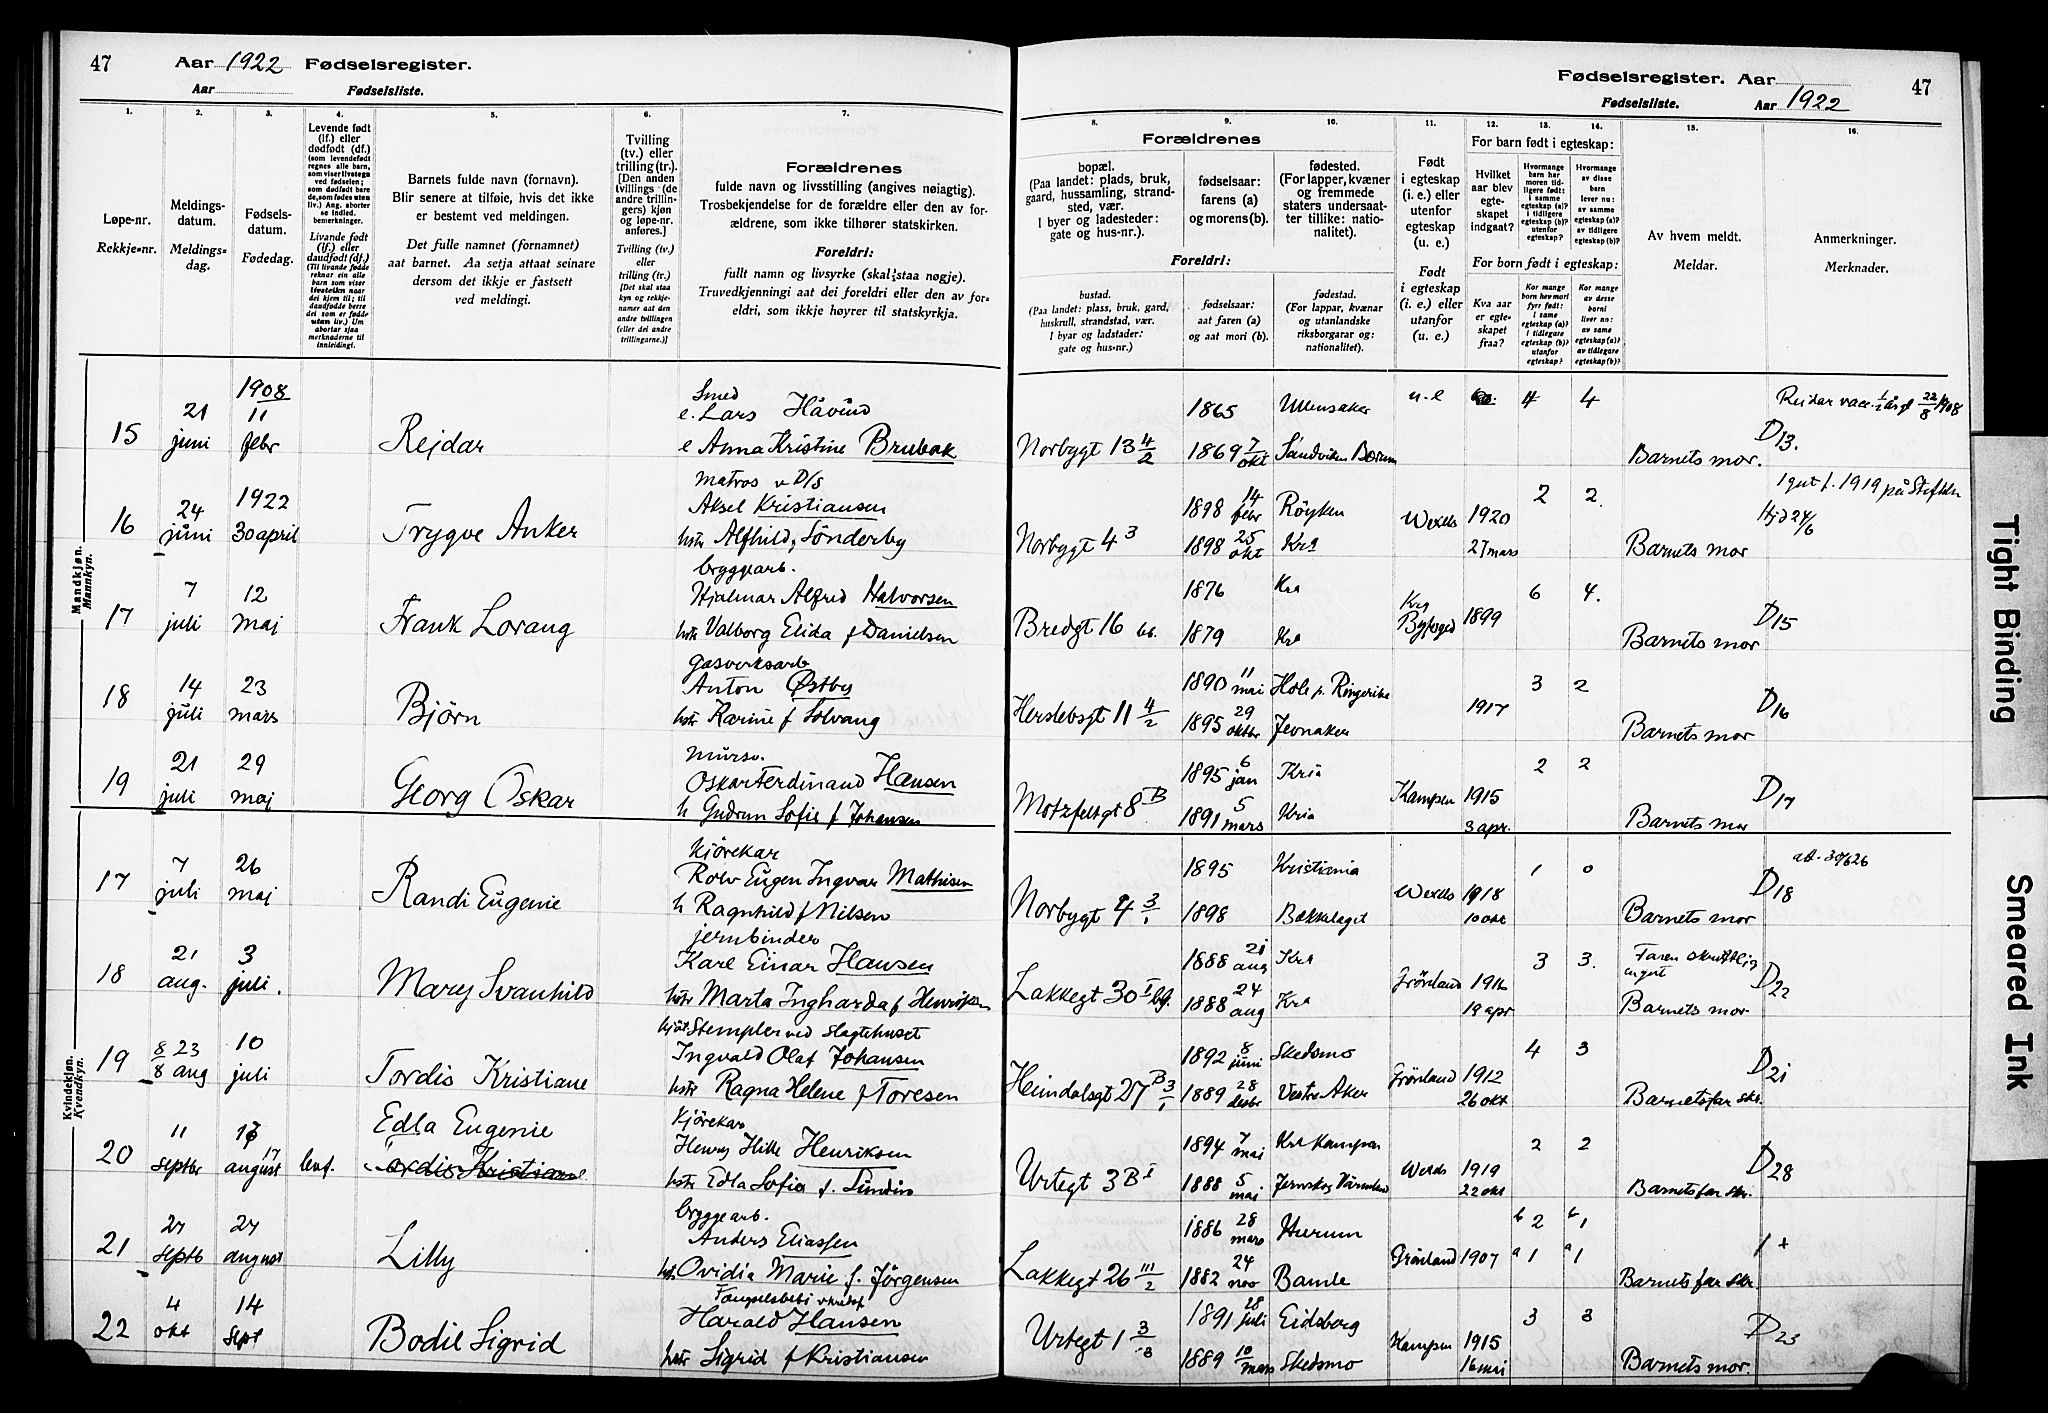 47
Aar 1922 Fødselsregister.
Aar Fødselsliste.
Fødselsregister. Aar
Fødselsliste. Aar 1922
47
1.
2.
3.
4.
5.
6.
7.
8.
9.
10.
11.
12.
13.
14.
15.
16.
Løpe-nr.
Rekkje-nr.
Meldings-
datum.
Meldings-
dag.
Fødsels-
datum.
Fødedag.
Levende født
(lf.) eller
dødfødt (df.)
(som levendefødt
regnes alle barn,
som viser livstegn
ved fødselen;
som dødfødt bare
de, som fødes uten
liv.) Ang. aborter
se indled.
bemerkninger.
Livande født
(lf.) eller
daudfødt (df.)
Barnets fulde navn (fornavn).
Blir senere at tilføie, hvis det ikke
er bestemt ved meldingen.
Det fulle namnet (fornamnet)
aat barnet. Aa setja attaat seinare
dersom det ikkje er fastsett
ved meldingi.
Tvilling
(tv.) eller
trilling (tr.).
[Den anden
tvillings (de
andre trillin-
gers) kjøn
og løpe-nr.
anføres.]
Tvilling (tv.)
eller
trilling (tr.)
[Det skal staa
kyn og rekkje-
numer aat den
andre tvillingen
(eller dei andre
trillingarne.)]
Forældrenes
fulde navn og livsstilling (angives nøiagtig).
Trosbekjendelse for de forældre eller den av for-
ældrene, som ikke tilhører statskirken.
Foreldri:
fullt namn og livsyrke (skal staa nøgje).
Truvedkjenningi aat dei foreldri eller den av for-
eldri, som ikkje høyrer til statskyrkja.
Forældrenes
bopæl.
(Paa landet: plads, bruk,
gaard, hussamling, strand-
sted, vær.
I byer og ladesteder:
gate og hus-nr.).
fødselsaar:
farens (a)
og morens (b).
fødested.
(For lapper, kvæner
og fremmede
staters undersaat-
ter tillike: natio-
nalitet).
Foreldri:
bustad.
(Paa landet: plass, bruk, gard,
huskrull, strandstad, vær.
I byar og ladstader:
gate og hus-nr.)
fødselsaar:
aat faren (a)
og aat mori (b).
fødestad.
(For lappar, kvænar
og utanlandske
riksborgarar og:
nationalitet).
Født
i egteskap
(i. e.) eller
utenfor
egteskap
(u. e.)
Født
i egteskap
(i. e.) eller
utanfor
egteskap
(u. e.)
For barn født i egteskap:
Hvilket
aar blev
egte-
skapet
indgaat?
For born født i egteskap:
Kva aar
er egte-
skapet
fraa?
Av hvem meldt.
Meldar.
Anmerkninger.
Merknader.
Mandkjøn.
Mannkyn.
15 21 juni 1908 11 febr Rejdar
Smed
e. Lars Håvind
e Anna Kristine Brubak
Norbygt 13 4/2 1865 Ullensaker u.e 4 4
1869 7/okt Sandviken Bærum Barnets mor. D13.
16 24 juni 1922 30 april Trygve Anker
matros v D/S
Aksel Kristiansen
hstr Alfhild, Sönderby
Norbygt 4 3 1898 14 febr Röyken Wexels 1920 2 2.
1898 25 okt Kra 27 mars Barnets mor
17 7 juli 12 maj Frank Lorang
bryggearb.
Hjalmar Alfred Halvorsen
hstr Valborg Elida f Danielsen
Bredgt 16 1876 Kra 1899 6 4.
1879 Kra Barnets mor D15
18 14 juli 23 mars Bjørn
gasverksarb
Anton Østby
hstr Karine f Solvang
Herslebsgt 11 4/2 1890 11 mai Hole p. Ringerike 1917 3 2
1895 29 oktbr Jevnaker Barnets mor D16
19 21 juli 29 maj Georg Oskar
mursv.
Oskar Ferdinand Hansen
h Gudrun Sofie f Johansen
Motzfeltsgt 8 B 1895 6 jan Kria Kampen 1915 2 2
1891 5 mars Kria 3 apr. Barnets mor D17
Kvindekjøn.
Kvendkyn.
17 7 juli 26 maj Randi Eugenie
kjörekar
Rolv Eugen Ingvar Mathisen
h Ragnhild f Nilsen
Norbygt 4 3/1 1895 Kristiania Wexels 1918 1 0
1898 Bækkelaget 10 okt Barnets mor D18
18 21 aug. 3 juli. Mary Svanhild
jernbinder
Karl Einar Hansen
hstr Marta Ingharda f Henriksen
Lakkegt 30 I bg. 1888 21 aug Kra Grönland 3 3.
1888 24 aug Kra 19 apr Barnets mor D22
19 8/8 23 aug 10 juli Tordis Kristiane
Stempler ved slagtehuset
Ingvald Olaf Johansen
hstr Ragna Helene f Toresen
Heimdalsgt 27 B 3/1 1892 8 juni Skedsmo Grönland 1912 4 3
1889 28 desbr Vestre Aker 26 okt Barnets far skr. D21
20 11 septbr 17 august levf. Edla Eugenie
Tordis Kristiane
Kjörekar
Henry Hilte Henriksen
hstr Edla Sofia f. Sundin
Urtegt 3 B I 1894 7 mai Kra Kampen 1919 2 2
1888 5 mai 22 okt Barnets far skr. D28
21 27 septb 27 august Lilly
bryggearb.
Anders Eliassen
hstr Ovidia Marie f. Jörgensen
Lakkegt 26 III/2 1886 28 mars Hurum Grönland 1907 b 2 b 1
1882 24 nov Bamle a 1 a 1 Barnets far skr
22 4 okt 14 sept Bodil Sigrid
Harald Hansen
hstr Sigrid f Kristiansen
Urtegt 1 3/8 1891 28 juli Eidsberg Kampen 1915 3 3
1889 10/mars Skedsmo 16 mai Barnets mor. D23
Tight Binding
Smeared Ink